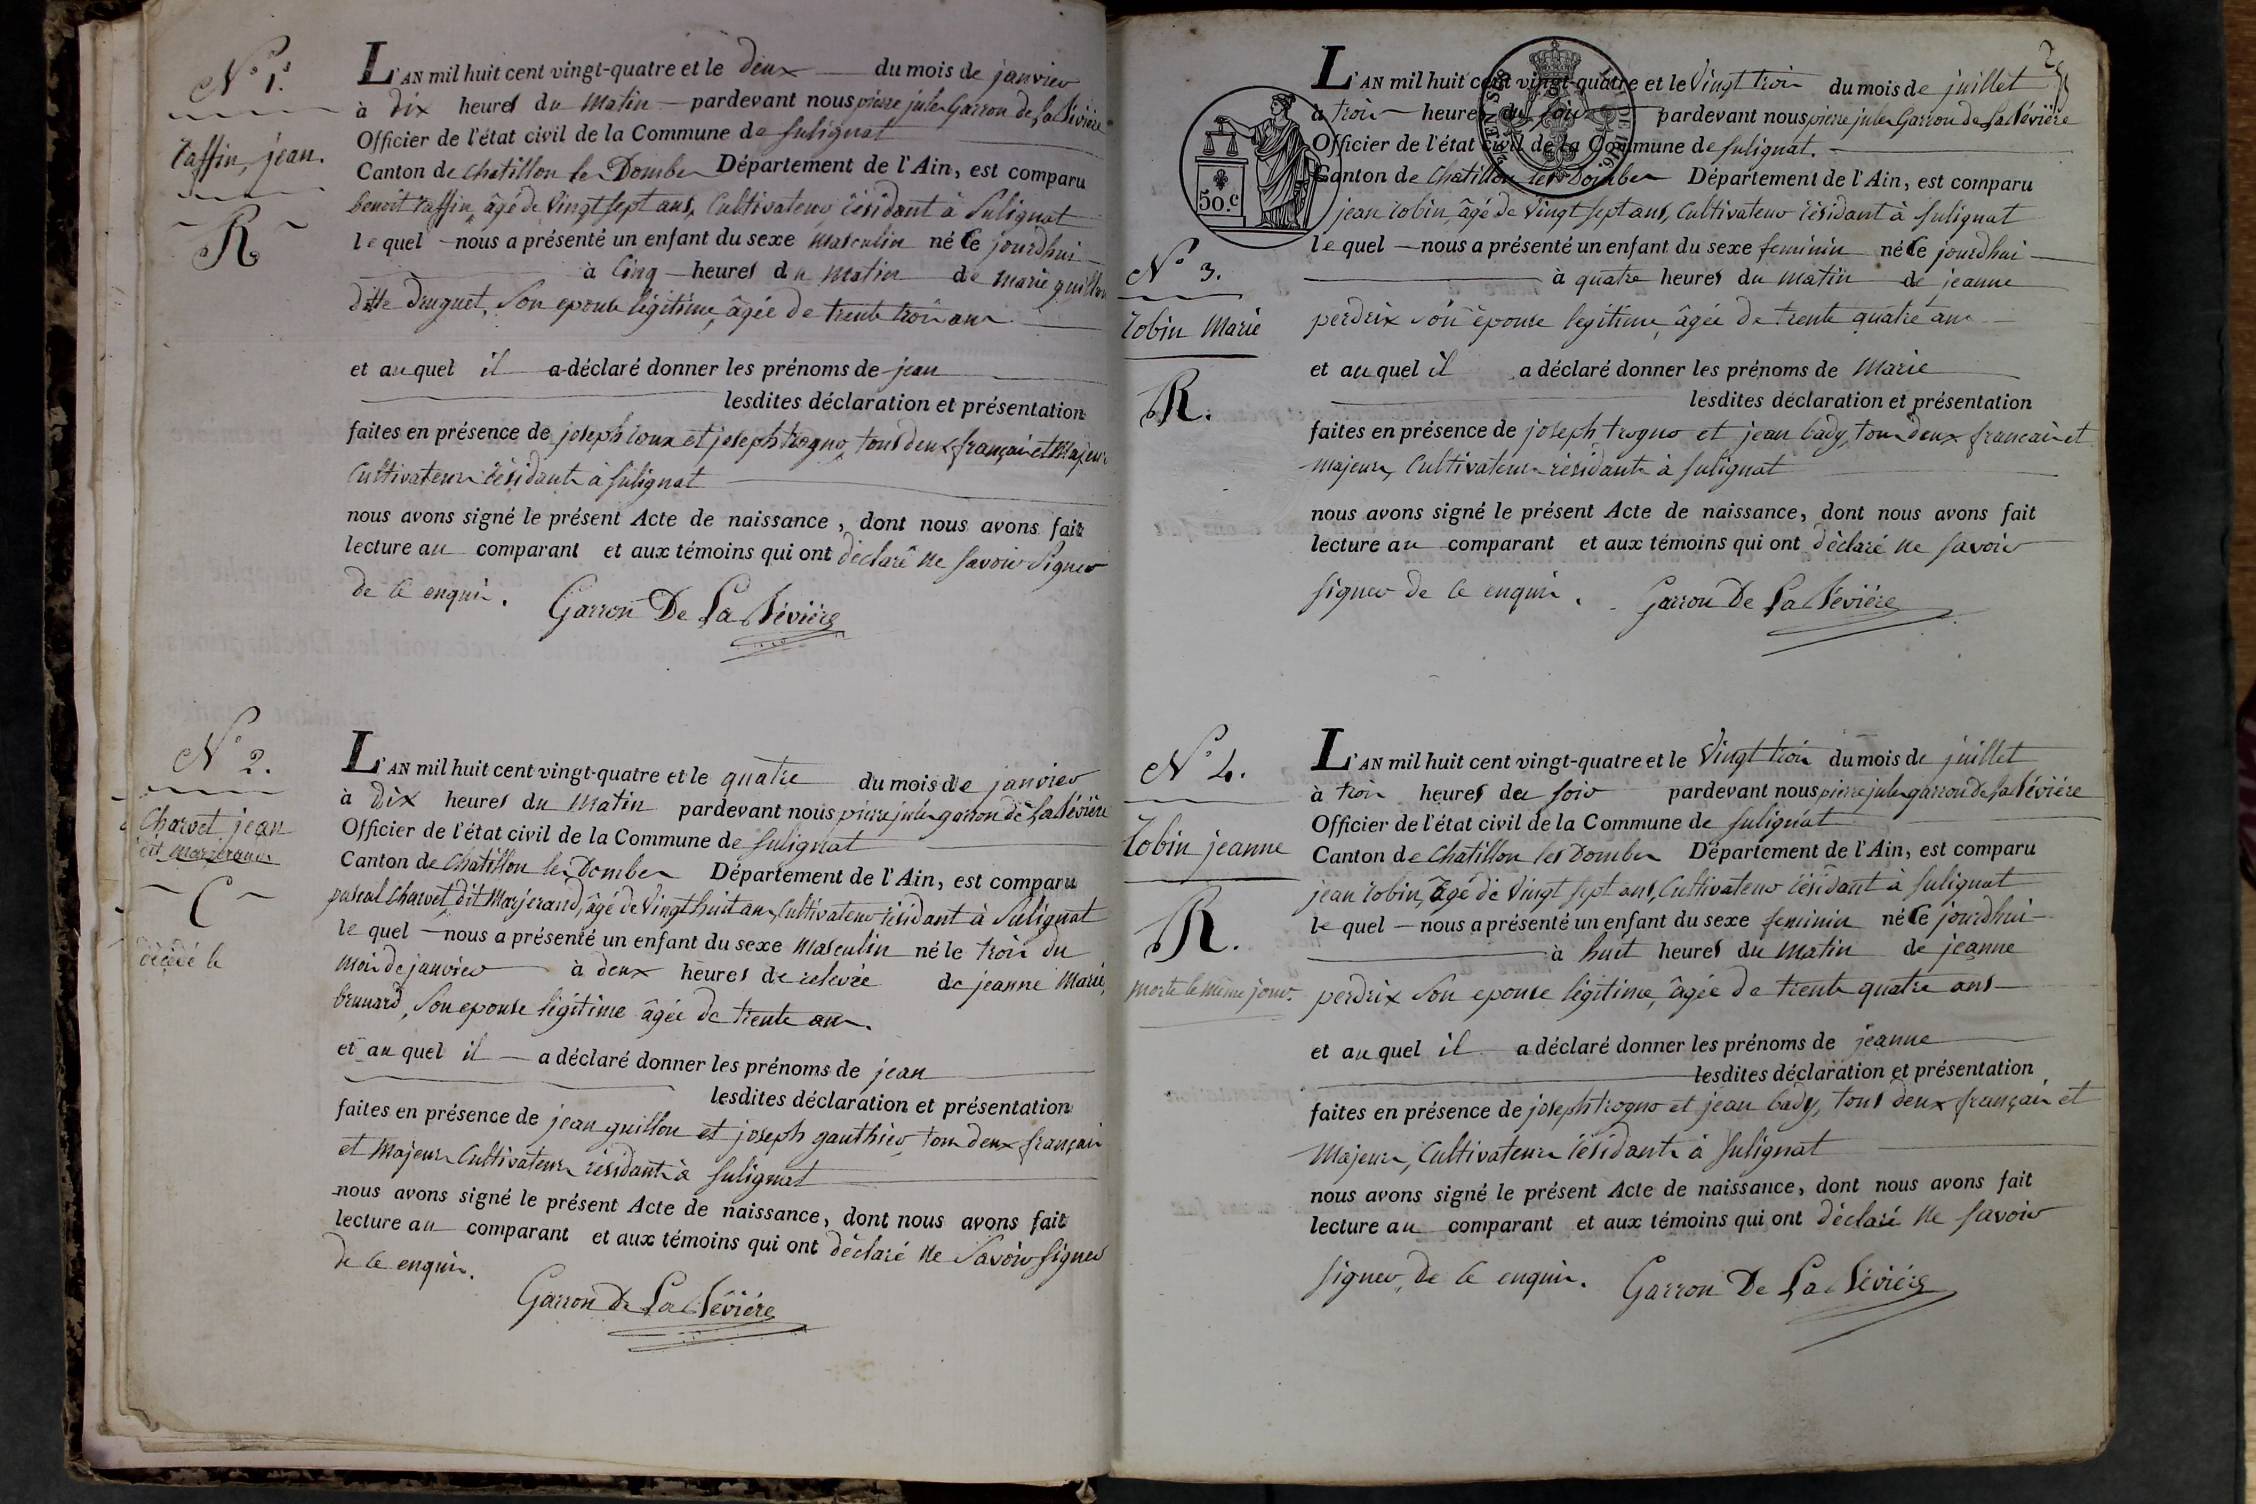 N° 1.er
L'AN mil huit cent vingt-quatre et le deux du mois de janvier
à dix heures du Matin pardevant nous pierre jules Garron de La Sévière
Officier de l'état civil de la Commune de Sulignat
taffin, jean.
Canton de Chatillon les Dombes Département de l'Ain, est comparu
benoit taffin, âgé de Vingt sept ans, Cultivateur résidant à Sulignat
R
le quel nous a présenté un enfant du sexe Masculin né Ce jourdhui
à Cinq heures du Matin de Marie guillon
ditte druguet, Son epouse légitime, âgée de trente trois ans
et auquel il a déclaré donner les prénoms de jean
lesdites déclaration et présentation
faites en présence de joseph roux et joseph trogno, tous deux français et Majeurs
Cultivateurs résidants à Sulignat
nous avons signé le présent Acte de naissance, dont nous avons fait
lecture au comparant et aux témoins qui ont déclaré ne savoir Signer
de ce enquis.
Garron De La Sévière
N° 2.
L'AN mil huit cent vingt-quatre et le quatre du mois de janvier
à dix heures du Matin pardevant nous pierre jules garron de La Sévière
Charvet, jean
Officier de l'état civil de la Commune de Sulignat
dit Marjerand
Canton de Chatillon les Dombes Département de l'Ain, est comparu
C
pascal Charvet, dit Marjerand, âgé de Vingt huit ans, Cultivateur résidant à Sulignat
le quel nous a présenté un enfant du sexe Masculin né le trois du
décédé le
mois de janvier à deux heures de relevée de jeanne Marie
brunard, Son epouse légitime âgée de trente ans.
et au quel il a déclaré donner les prénoms de jean
lesdites déclaration et présentation
faites en présence de jean guillon et joseph gauthier, tous deux français
et Majeurs Cultivateurs résidants à Sulignat
nous avons signé le présent Acte de naissance, dont nous avons fait
lecture au comparant et aux témoins qui ont déclaré ne Savoir signer
de ce enquis.
Garron De La Sévière
L'AN mil huit cent vingt-quatre et le Vingt trois du mois de juillet
à trois heures du soir pardevant nous pierre jules Garron de La Sévière
Officier de l'état civil de la Commune de Sulignat.
Canton de Chatillon les Dombes Département de l'Ain, est comparu
50.c
jean robin, âgé de Vingt sept ans, Cultivateur résidant à Sulignat
N° 3.
le quel nous a présenté un enfant du sexe feminin né Ce jourdhui
à quatre heures du Matin de jeanne
robin Marie
perdrix son épouse legitime, âgée de trente quatre ans
R.
et au quel il a déclaré donner les prénoms de Marie
lesdites déclaration et présentation
faites en présence de joseph trogno et jean bady, tous deux français et
Majeurs, Cultivateurs résidants à Sulignat
nous avons signé le présent Acte de naissance, dont nous avons fait
lecture au comparant et aux témoins qui ont déclaré ne savoir
signer de ce enquis.
Garron De La Sévière
N° 4.
L'AN mil huit cent vingt-quatre et le Vingt trois du mois de juillet
à trois heures du soir pardevant nous pierre jules garron de La Sévière
Officier de l'état civil de la Commune de Sulignat
robin jeanne
Canton de Chatillon les Dombes Département de l'Ain, est comparu
jean robin, âgé de Vingt sept ans, Cultivateur résidant à Sulignat
R.
le quel nous a présenté un enfant du sexe feminin né Ce jourdhui
à huit heures du Matin de jeanne
morte le même jour.
perdrix Son epouse légitime, âgée de trente quatre ans
et au quel il a déclaré donner les prénoms de jeanne
lesdites déclaration et présentation
faites en présence de joseph trogno et jean bady, tous deux français et
Majeurs, Cultivateurs résidants à Sulignat
nous avons signé le présent Acte de naissance, dont nous avons fait
lecture au comparant et aux témoins qui ont déclaré ne savoir
signer, de ce enquis.
Garron De La Sévière